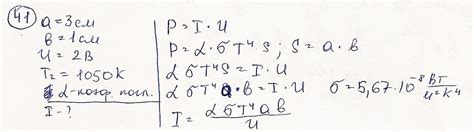 41
a = 3 см
в = 1 см
U = 2 В
T₂ = 1050 К
α - коэф. погл.
I - ?
P = I · U
P = α · σ T⁴ S ; S = a · в
α σ T⁴ S = I · U
α σ T⁴ a · в = I · U
σ = 5,67 · 10⁻⁸ Вт / м² К⁴
I = α σ T⁴ a в / U